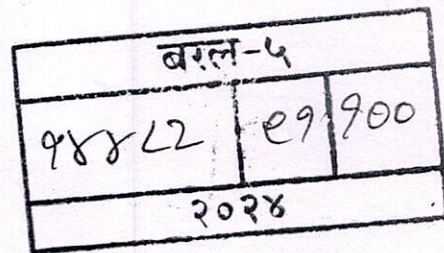 बरल-५
१४४८२ ९१ १००
२०२४